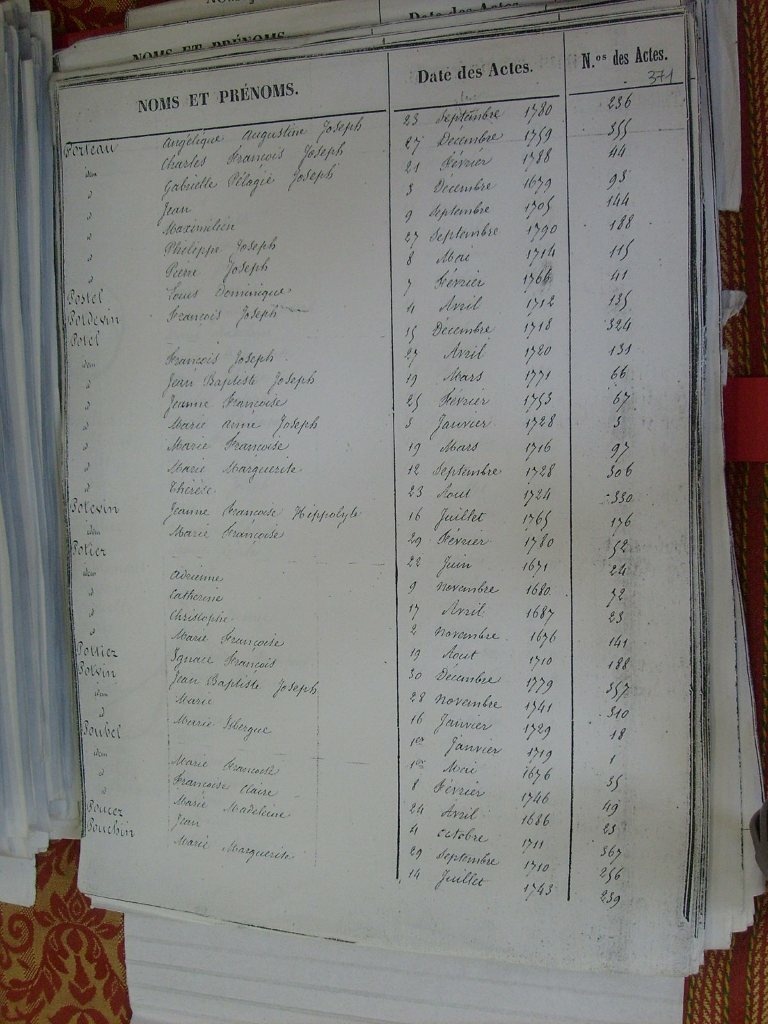 NOMS ET PRÉNOMS.
Date des Actes.
N.os des Actes.
371
Porteau Angélique Augustine Joseph 23 Septembre 1780 236
idem Charles François Joseph 27 Décembre 1759 355
d Gabrielle Pélagie Joseph 21 Février 1788 44
d Jean 3 Décembre 1679 93
d Maximilien 9 Septembre 1705 144
d Philippe Joseph 27 Septembre 1790 188
d Pierre Joseph 8 Mai 1714 115
Postel Louis Dominique 7 Février 1766 41
Potdevin François Joseph 4 Avril 1712 135
Potel 15 Décembre 1718 324
idem François Joseph 27 Avril 1720 131
d Jean Baptiste Joseph 19 Mars 1771 66
d Jeanne Françoise 25 Février 1753 67
d Marie Anne Joseph 3 Janvier 1728 3
d Marie Françoise 19 Mars 1716 97
d Marie Marguerite 12 Septembre 1728 306
d Thérèse 23 Aout 1724 330
Potevin Jeanne Françoise Hippolyte 16 Juillet 1765 176
idem Marie Françoise 29 Février 1780 52
Potier 22 Juin 1671 24
idem Adrienne 9 Novembre 1680 72
d Catherine 17 Avril 1687 23
d Christophe 2 Novembre 1676 141
d Marie Françoise 19 Aout 1710 188
Pottier Ignace François 30 Décembre 1779 357
Potvin Jean Baptiste Joseph 28 Novembre 1741 310
idem Marie 16 Janvier 1729 18
d Marie Isbergue 1er Janvier 1719 1
Poubel 1er Mai 1676 35
idem Marie Françoise 8 Février 1746 49
d Françoise Claire 24 Avril 1686 23
d Marie Madeleine 4 Octobre 1711 367
Poucez Jean 29 Septembre 1710 256
Pouchin Marie Marguerite 14 Juillet 1743 239